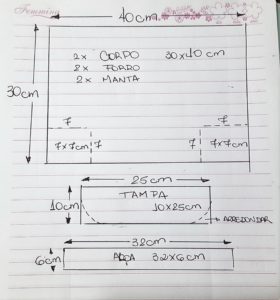 Femminu
40cm.
2x CORPO 30x40cm
2x FORRO
2x MANTA
30cm
7 7
7x7cm 7 7 7x7cm
25cm
TAMPA
10cm 10x25cm
ARREDONDAR
32cm
6cm ALÇA 32x6cm